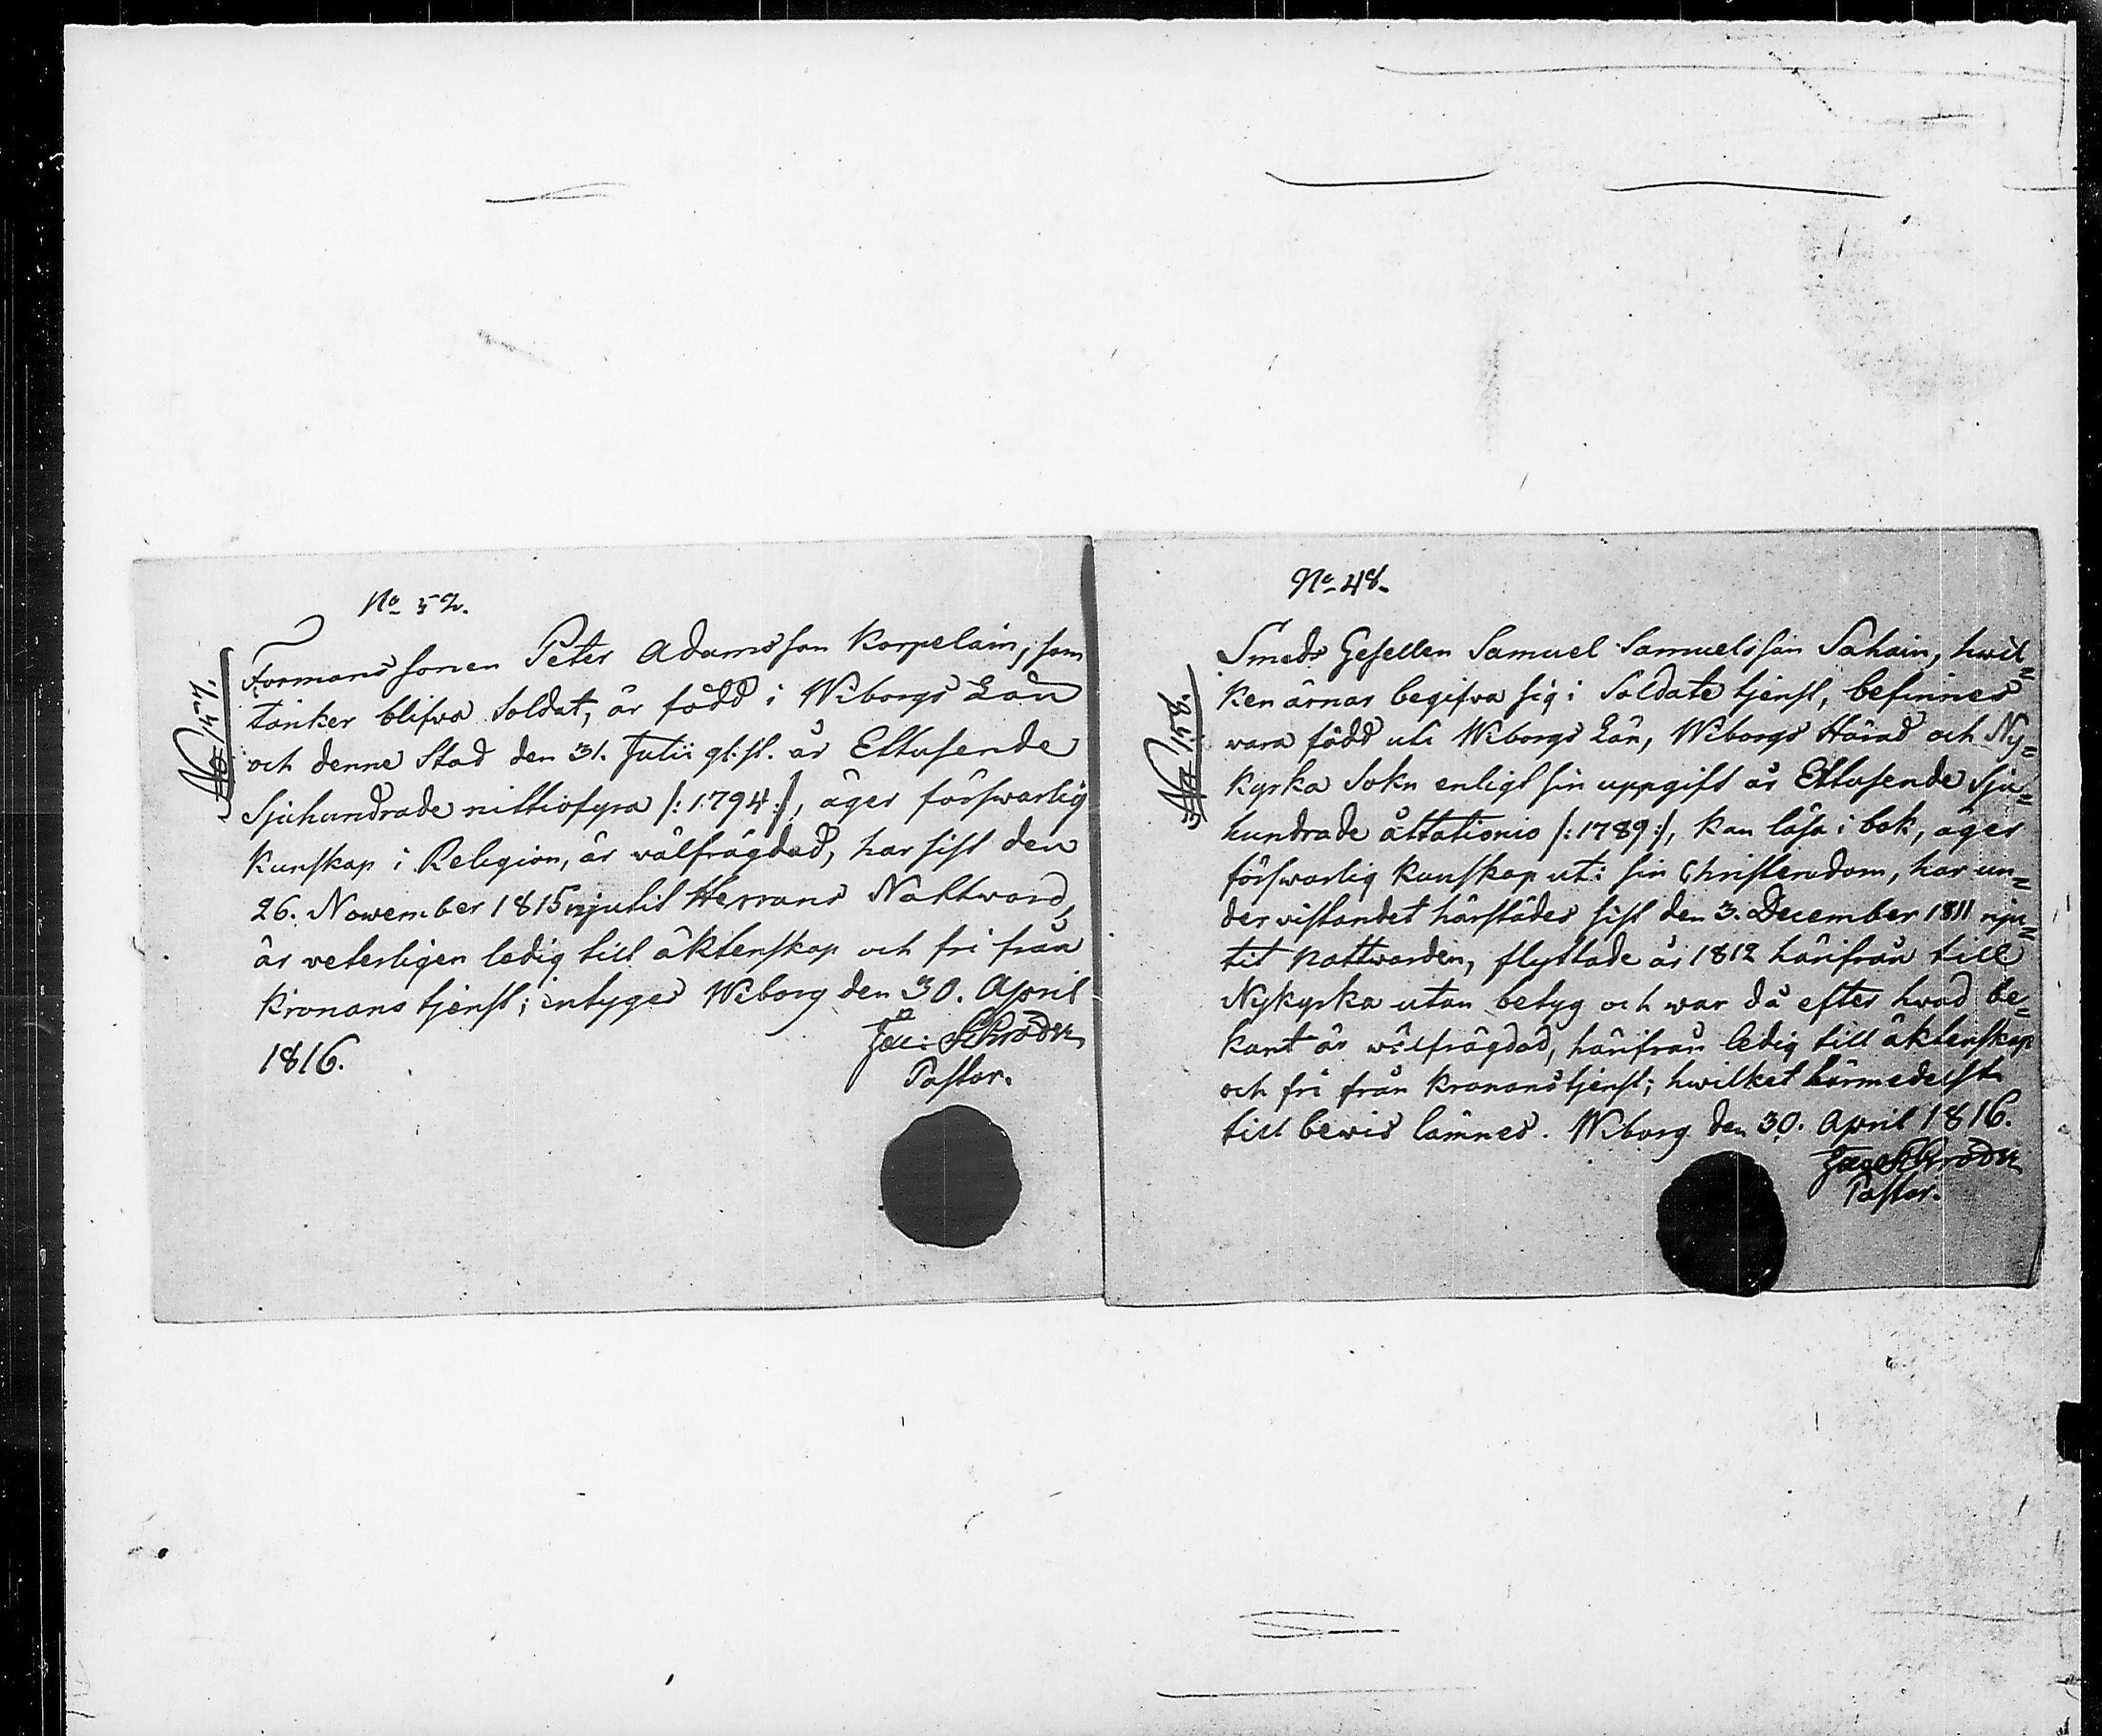 No 52.
No 157.
Formanssonen Peter Adamsson Korpelain, som
tänker blifva Soldat, är född i Wiborgs Län
och denne Stad den 31. Julii gl. st. år Ettusende
Sjuhundrade nittiofyra /: 1794 :/, äger förswarlig
Kunskap i Religion, är wälfrägdad, har sist den
26. November 1815 njutit Herrans Nattward,
är veterligen ledig till äktenskap och fri från
Kronans tjenst; intygas Wiborg den 30. April
1816.
Schröder
Pastor.
No 48.
No 158.
Smeds Gesellen Samuel Samuelsson Sahain, hwil=
ken ärnar begifva sig i Soldate tjenst, befinnes
vara född uti Wiborgs Län, Wiborgs Härad och Ny=
kyrka Sokn enligt sin uppgift år Ettusende Sju=
hundrade åttationio /: 1789 :/, kan läsa i bok, äger
förswarlig Kunskap uti sin Christendom, har un=
der vistandet härstädes sist den 3. December 1811 nju=
tit Nattwarden, flyttade år 1812 härifrån till
Nykyrka utan betyg och war då efter hvad be=
kant är wälfrägdad, härifrån ledig till äktenskap
och fri från Kronans tjenst; hwilket härmedelst
till bewis lämnes. Wiborg den 30. April 1816.
Schröder
Pastor.